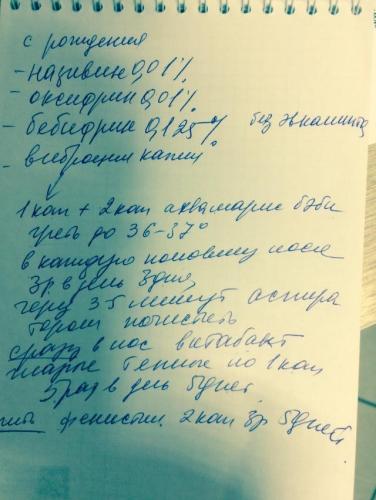 с рождения
- називин 0,01%
- оксифрин 0,01%
- бебифрин 0,125% без эвкалипта
- виброцил капли
1 кап + 2 кап аквамарис бэби
греть до 36-37°
в каждую половину носа
3р в день 3 дня,
через 3-5 минут аспира
тором почистить
сразу в нос витабакт
глазные теплые по 1 кап
3 раз в день 5 дней
пить фенистил 2 кап 3р 5 дней